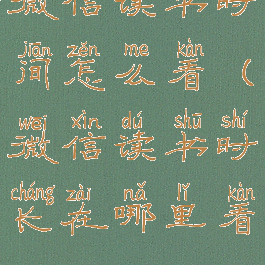 微信读书时
jiān zěn me kàn
间怎么看（
wēi xìn dú shū shí
微信读书时
cháng zài nǎ lǐ kàn
长在哪里看